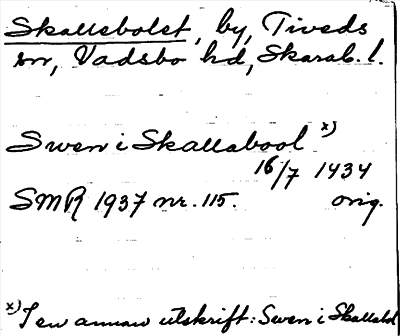 Skallebolet, by, Tiveds
sn, Vadsbo hd, Skarab. l.
Swen i Skallabool x)
16/7 1434
SMR 1937 nr. 115. orig.
x) I en annan utskrift: Swen i Skallabol